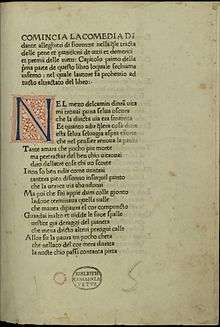 COMINCIA LA COMEDIA DI
dante alleghieri di fiorenze nella q̃le tracta
delle pene et punitioni de uitii et demeriti
et premii delle uirtu: Capitolo primo della
p̃ma parte de questo libro loquale sechiama
inferno: nel quale lautore fa prohemio ad
tucto eltractato del libro:.
NEL mezo delcamin dinr̃a uita
mi trouai puna selua oscura
che la diricta uia era smarrita
Et quanto adir q̃lera cosa dura
esta selua seluagia aspra eforte
che nel pensier renoua la paura
Tante amara che pocho piu morte
ma pertractar del ben chio uitrouai
diro dellaltre cose chi uo scorte
I non so ben ridir como uentrai
tantera pien disonno insuquil punto
che la uerace uia abandonai
Ma poi che fui appie dum colle gionto
ladoue terminaua quella ualle
che mauea dipaura el cor compuncto
Guardai inalto et uidde le soue spalle
uestite gia deraggi del pianeta
che mena dricto altrui perogni calle
Allor fu la paura un pocho cheta
che nellaco del cor mera durata
la nocte chio passai contanta pieta